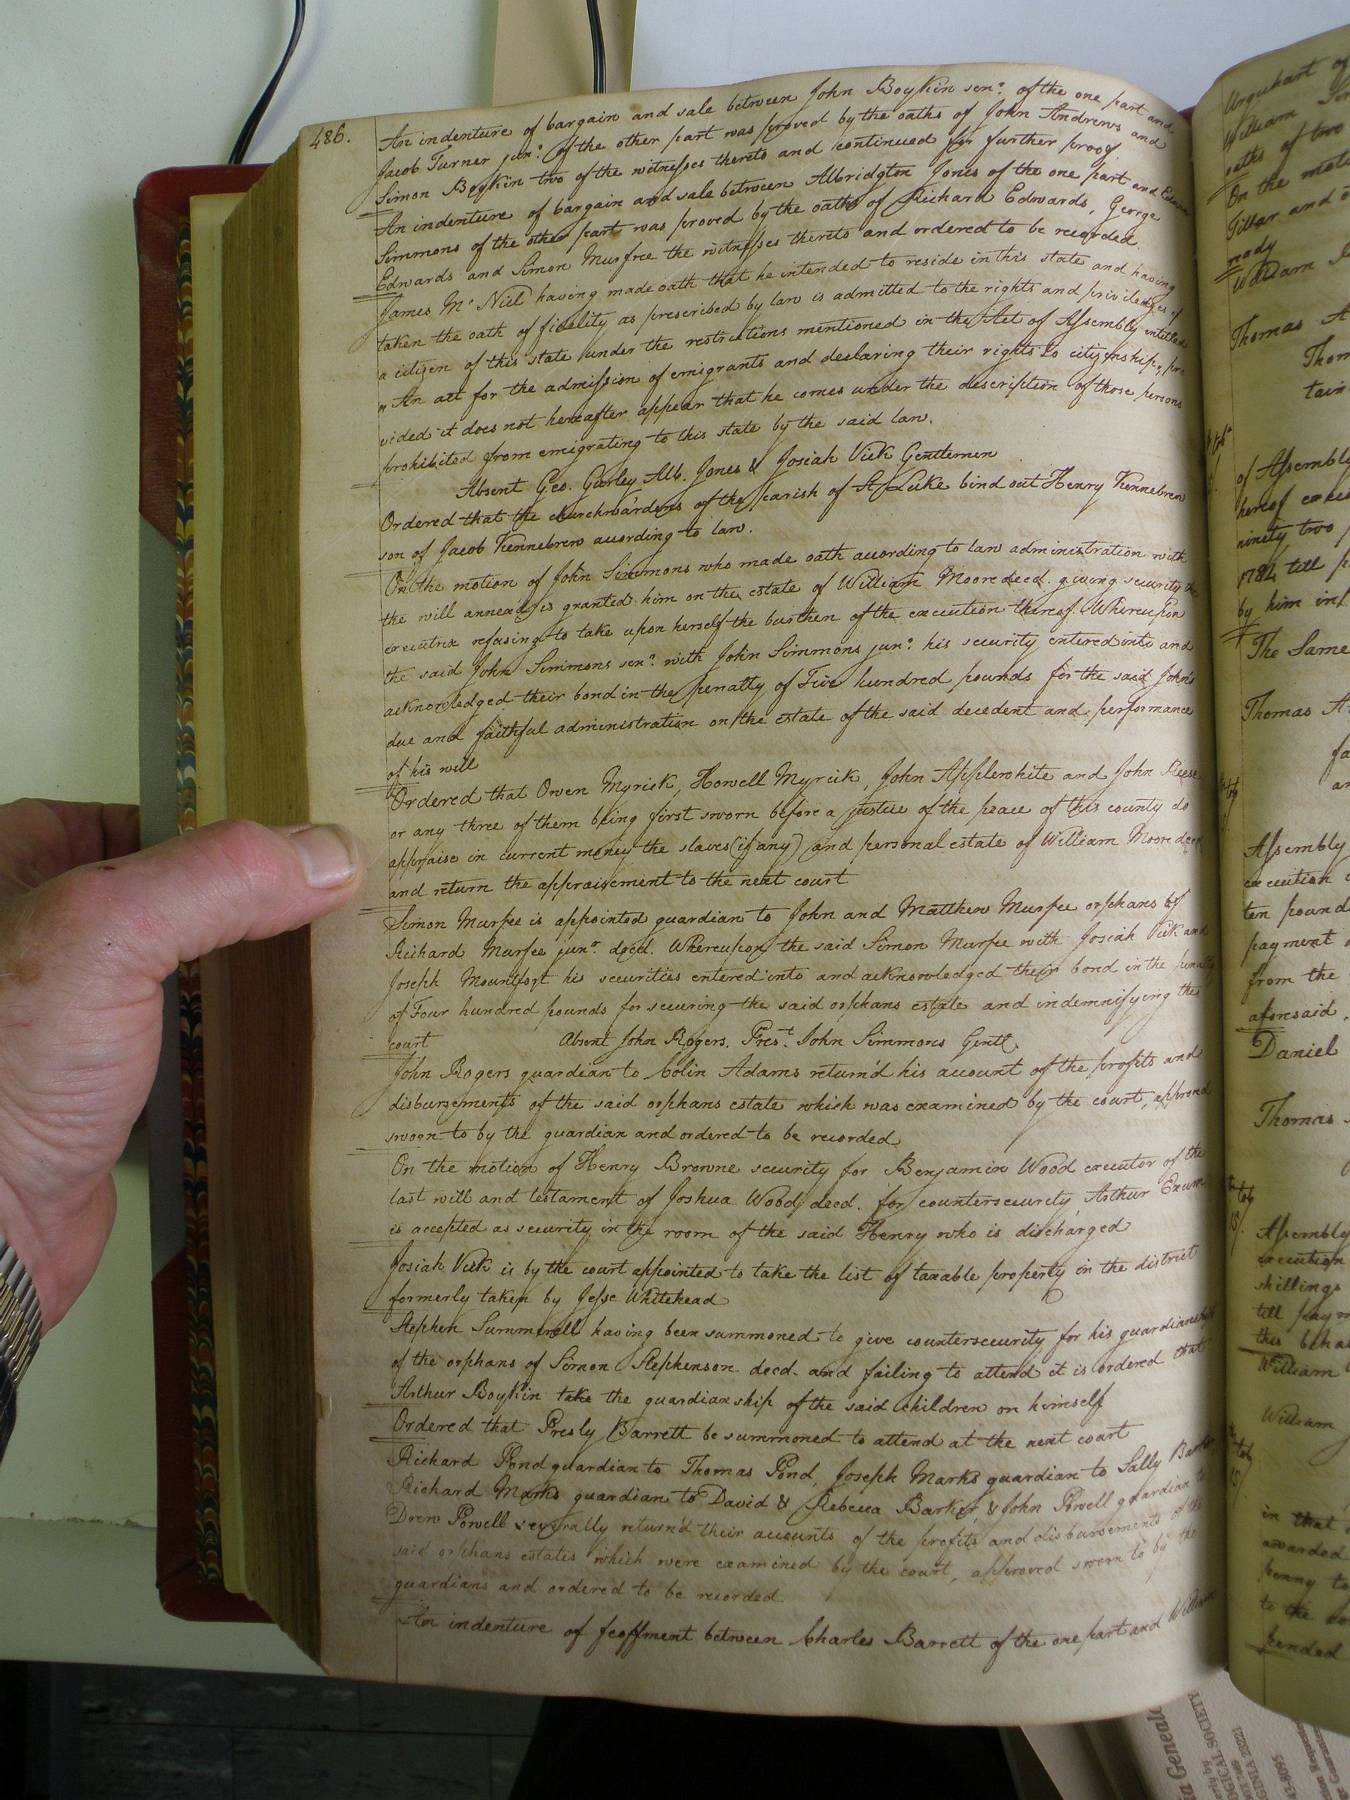 486.
An indenture of bargain and sale between John Boykin senr. of the one part and
Jacob Turner junr. of the other part was proved by the oaths of John Andrews and
Simon Boykin two of the witnesses thereto and continued for further proof
An indenture of bargain and sale between Albridgton Jones of the one part and Edwin
Simmons of the other part was proved by the oaths of Richard Edwards, George
Edwards and Simon Murfree the witnesses thereto and ordered to be recorded.
James McNiel having made oath that he intended to reside in this state and having
taken the oath of fidelity as prescribed by law is admitted to the rights and priviledges of
a citizen of this state under the restrictions mentioned in the Act of Assembly entitled
"An act for the admission of emigrants and declaring their rights to citizenship," pro
vided it does not hereafter appear that he comes under the description of those persons
prohibited from emigrating to this state by the said law.
Absent Geo. Gurley Alb. Jones & Josiah Vick Gentlemen
Ordered that the churchwardens of the parish of St Luke bind out Henry Kennebrew
son of Jacob Kennebrew according to law.
On the motion of John Simmons who made oath according to law administration with
the will annexed is granted him on the estate of William Moore decd. giving security the
executrix refusing to take upon herself the burthen of the execution thereof. Whereupon
the said John Simmons senr. with John Simmons junr. his security entered into and
acknowledged their bond in the penalty of Five hundred pounds for the said John's
due and faithful administration on the estate of the said decedent and performance
of his will
Ordered that Owen Myrick, Howell Myrick, John Applewhite and John Reese
or any three of them being first sworn before a justice of the peace of this county do
appraise in current money the slaves (if any) and personal estate of William Moore decd
and return the appraisement to the next court
Simon Murfee is appointed guardian to John and Matthew Murfee orphans of
Richard Murfee junr. decd. Whereupon the said Simon Murfee with Josiah Vick and
Joseph Mountfort his securities entered into and acknowledged their bond in the penalty
of Four hundred pounds for securing the said orphans estate and indemnifying the
court Absent John Rogers. Prest. John Simmons Gentl.
John Rogers guardian to Colin Adams return'd his account of the profits and
disbursements of the said orphans estate which was examined by the court, approved
sworn to by the guardian and ordered to be recorded
On the motion of Henry Browne security for Benjamin Wood executor of the
last will and testament of Joshua Wood decd. for countersecurity Arthur Exum
is accepted as security in the room of the said Henry who is discharged
Josiah Vick is by the court appointed to take the list of taxable property in the district
formerly taken by Jesse Whitehead
Stephen Summerell having been summoned to give countersecurity for his guardianship
of the orphans of Simon Stephenson decd. and failing to attend it is ordered that
Arthur Boykin take the guardianship of the said children on himself
Ordered that Presly Barrett be summoned to attend at the next court
Richard Pond guardian to Thomas Pond, Joseph Marks guardian to Sally Barker
Richard Marks guardian to David & Rebecca Barker, & John Powell guardian to
Drew Powell severally return'd their accounts of the profits and disbursements of the
said orphans estates which were examined by the court, approved sworn to by the
guardians and ordered to be recorded.
An indenture of feoffment between Charles Barrett of the one part and William
Urquhart of
William
oaths of two
On the moti
Tillar and
nody
William
Thomas
Thom
tain
of Assembly
hereof
ninety two
1784 till p
by him in
The Same
Thomas
Assembly
execution
ten pound
payment
from the
aforesaid.
Daniel
Thomas
Assembly
execution
shillings
till paym
this beha
William
William
in that
awarded
penny
to the
pended
a Geneal
ICAL SOCIETY
GINIA 22021